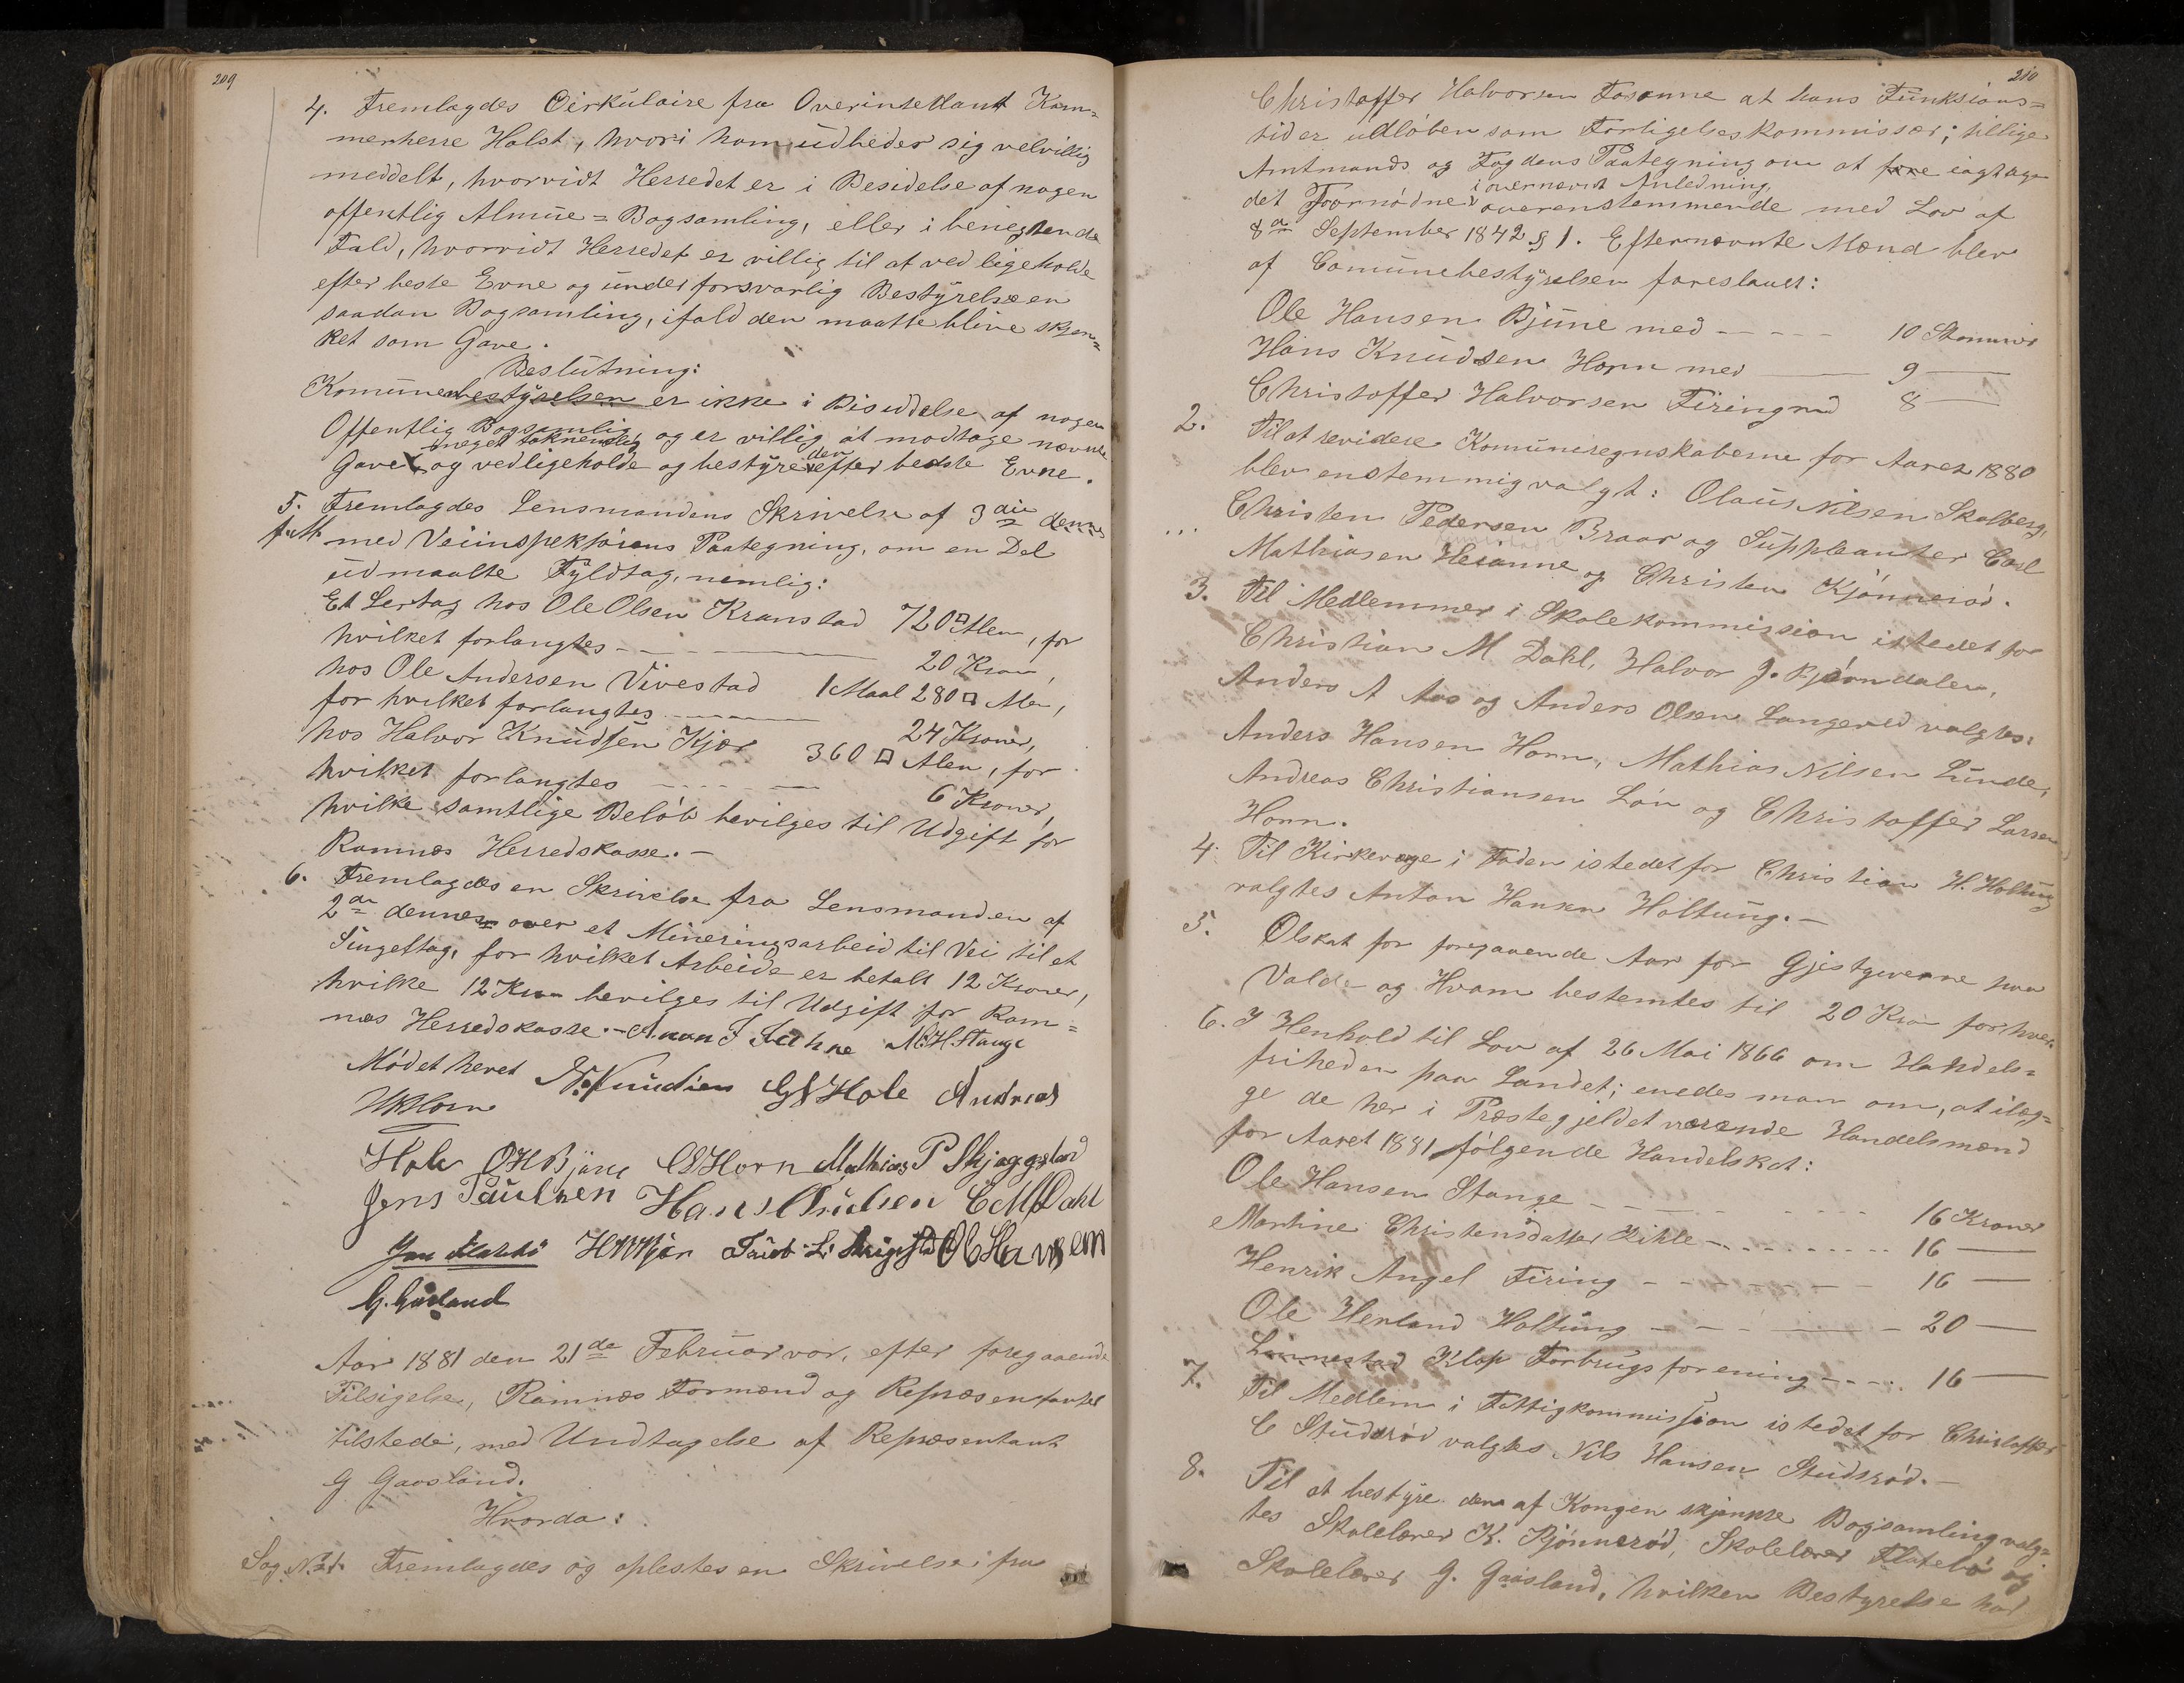 209
4. Fremlagdes Cirkulaire fra Overintendant Kam=
merherre Holst, hvori han udbeder sig velvillig
meddelt, hvorvidt Herredet er i Besidelse af nogen
offentlig Almue=Bogsamling, eller i benegtende
Fald, hvorvidt Herredet er villig til at vedligeholde
efter beste Evne og under forsvarlig Bestyrelse en
saadan Bogsamling, ifald den maatte blive skjæn=
ket som Gave.
Beslutning:
Komunebestyrelsen er ikke i Besiddelse af nogen
Offentlig Bogsamlig og er villig at modtage nævnte
meget taknemlig
Gave og vedligeholde og bestyre den efter bedste Evne.
5. Fremlagdes Lensmandens Skrivelse af 3die dennes
med Veiinspektørens Paategning, om en Del
udmaalte Fyldtag, nemlig:
Et Lertag hos Ole Olsen Kranstad 720 □ Alen, for
hvilket forlangtes 20 Kron,
hos Ole Andersen Vivestad 1 Maal 280 □ Alen,
for hvilket forlangtes 24 Kroner,
hos Halvor Knudsen Kjær 360 □ Alen, for
hvilket forlangtes 6 Kroner,
hvilke samtlige Beløb bevilges til Udgift for
Ramnæs Herredskasse.-
6. Fremlagdes en Skrivelse fra Lensmanden af
2den dennes over et Mineringsarbeid til Vei til et
Singeltag, for hvilket Arbeide er betalt 12 Kroner,
hvilke 12 Kron bevilges til Udgift for Ram=
næs Herredskasse.-
Mødet hevet Knudsen G Hole Andreas
Hole OHBjune Horn Mathias P Skjæggstad
Jens Paulsen Hans Knudsen C M Dahl
H Kjær O H Hansen
G. Gaasland
Aar 1881 den 21de Februar var, efter foregaaende
Tilsigelse, Ramnæs Formænd og Repræsentanter
tilstede, med Undtagelse af Repræsentant
G Gaasland.
Hvorda:
Sag No 1. Fremlagdes og oplestes en Skrivelse fra
210
Christoffer Halvorsen at hans Funksions=
tid er udløben som Forligelseskommissær; tillige
Amtmands og Fogdens Paategning om at iagttage
i overnævnt Anledning,
det Fornødne overenstemmende med Lov af
8de September 1842 § 1. Efternævnte Mænd blev
af Comunebestyrelsen foreslaaet:
Ole Hansen Bjune med - - - - 10 Stemmer
Hans Knudsen Horn med —— 9 ——
Christoffer Halvorsen 8 ——
2. Til at revidere Komuneregnskaberne for Aaret 1880
blev enstemmig valgt: Olaus Nilsen Skalberg,
Christen Pedersen Braar og Suppleanter Carl
Mathiasen og Christen Kjønnerød.
3. Til Medlemmer i Skolekommission istedet for
Christian M. Dahl, Halvor J. Bjørndalen,
Anders A Aas og Anders Olsen Langeved valgtes:
Anders Hansen Horn, Mathias Nilsen Lunde,
Andreas Christiansen Løn og Christoffer Larsen
Horn.
4. Til Kirkeværge i Foden istedet for Christian H. Holtung
valgtes Anton Hansen Holtung.-
5. Ølskat for foregaaende Aar for Gjestgiverne paa
Valde og Hvam bestemtes til 20 Kron for hver.
6. I Henhold til Lov af 26 Mai 1866 om Handels=
friheden paa Landet; enedes man om, at ilæg=
ge de her i Præstegjeldet værende Handelsmænd
for Aaret 1881 følgende Handelskat:
Ole Hansen Stange 16 Kroner
Martine Christensdatter Kihle 16 —
Henrik Angel Firing 16 —
Ole Herland Holtung 20 —
Linnestad Klop Forbrugsforening 16 —
7. Til Medlem i Fattigkommission istedet for Christoffer
C Studsrød valgtes Nils Hansen Studsrød.-
8. Til at bestyre den af Kongen skjænkte Bogsamling valg=
tes Skolelærer K. Kjønnerød, Skolelærer Flatebø og
Skolelærer G. Gaasland, hvilken Bestyrelse har